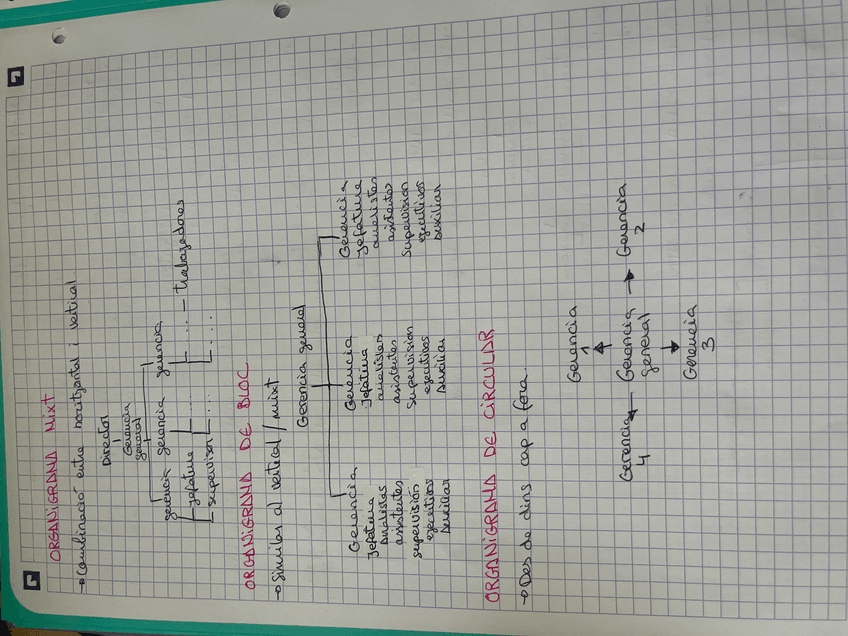 ORGANIGRAMA MIXT
→ Combinació entre horitzontal i vertical
Director
Gerencia
general
gerencia gerencia gerencia
jefatura .... .... – trabajadores
supervisor .... ....
ORGANIGRAMA DE BLOC
→ Similas al vertical / mixt
Gerencia general
Gerencia Gerencia Gerencia
Jefatura Jefatura Jefatura
Analistas analistas analistas
assistentes asistentes asistentes
supervisión Supervision Supervision
ejecutivos ejecutivos ejecutivos
Auxiliar Auxiliar Auxiliar
ORGANIGRAMA DE CIRCULAR
→ Des de dins cap a fora..
Gerencia
1
Gerencia ← Gerencia → Gerencia
4 general 2
Gerencia
3